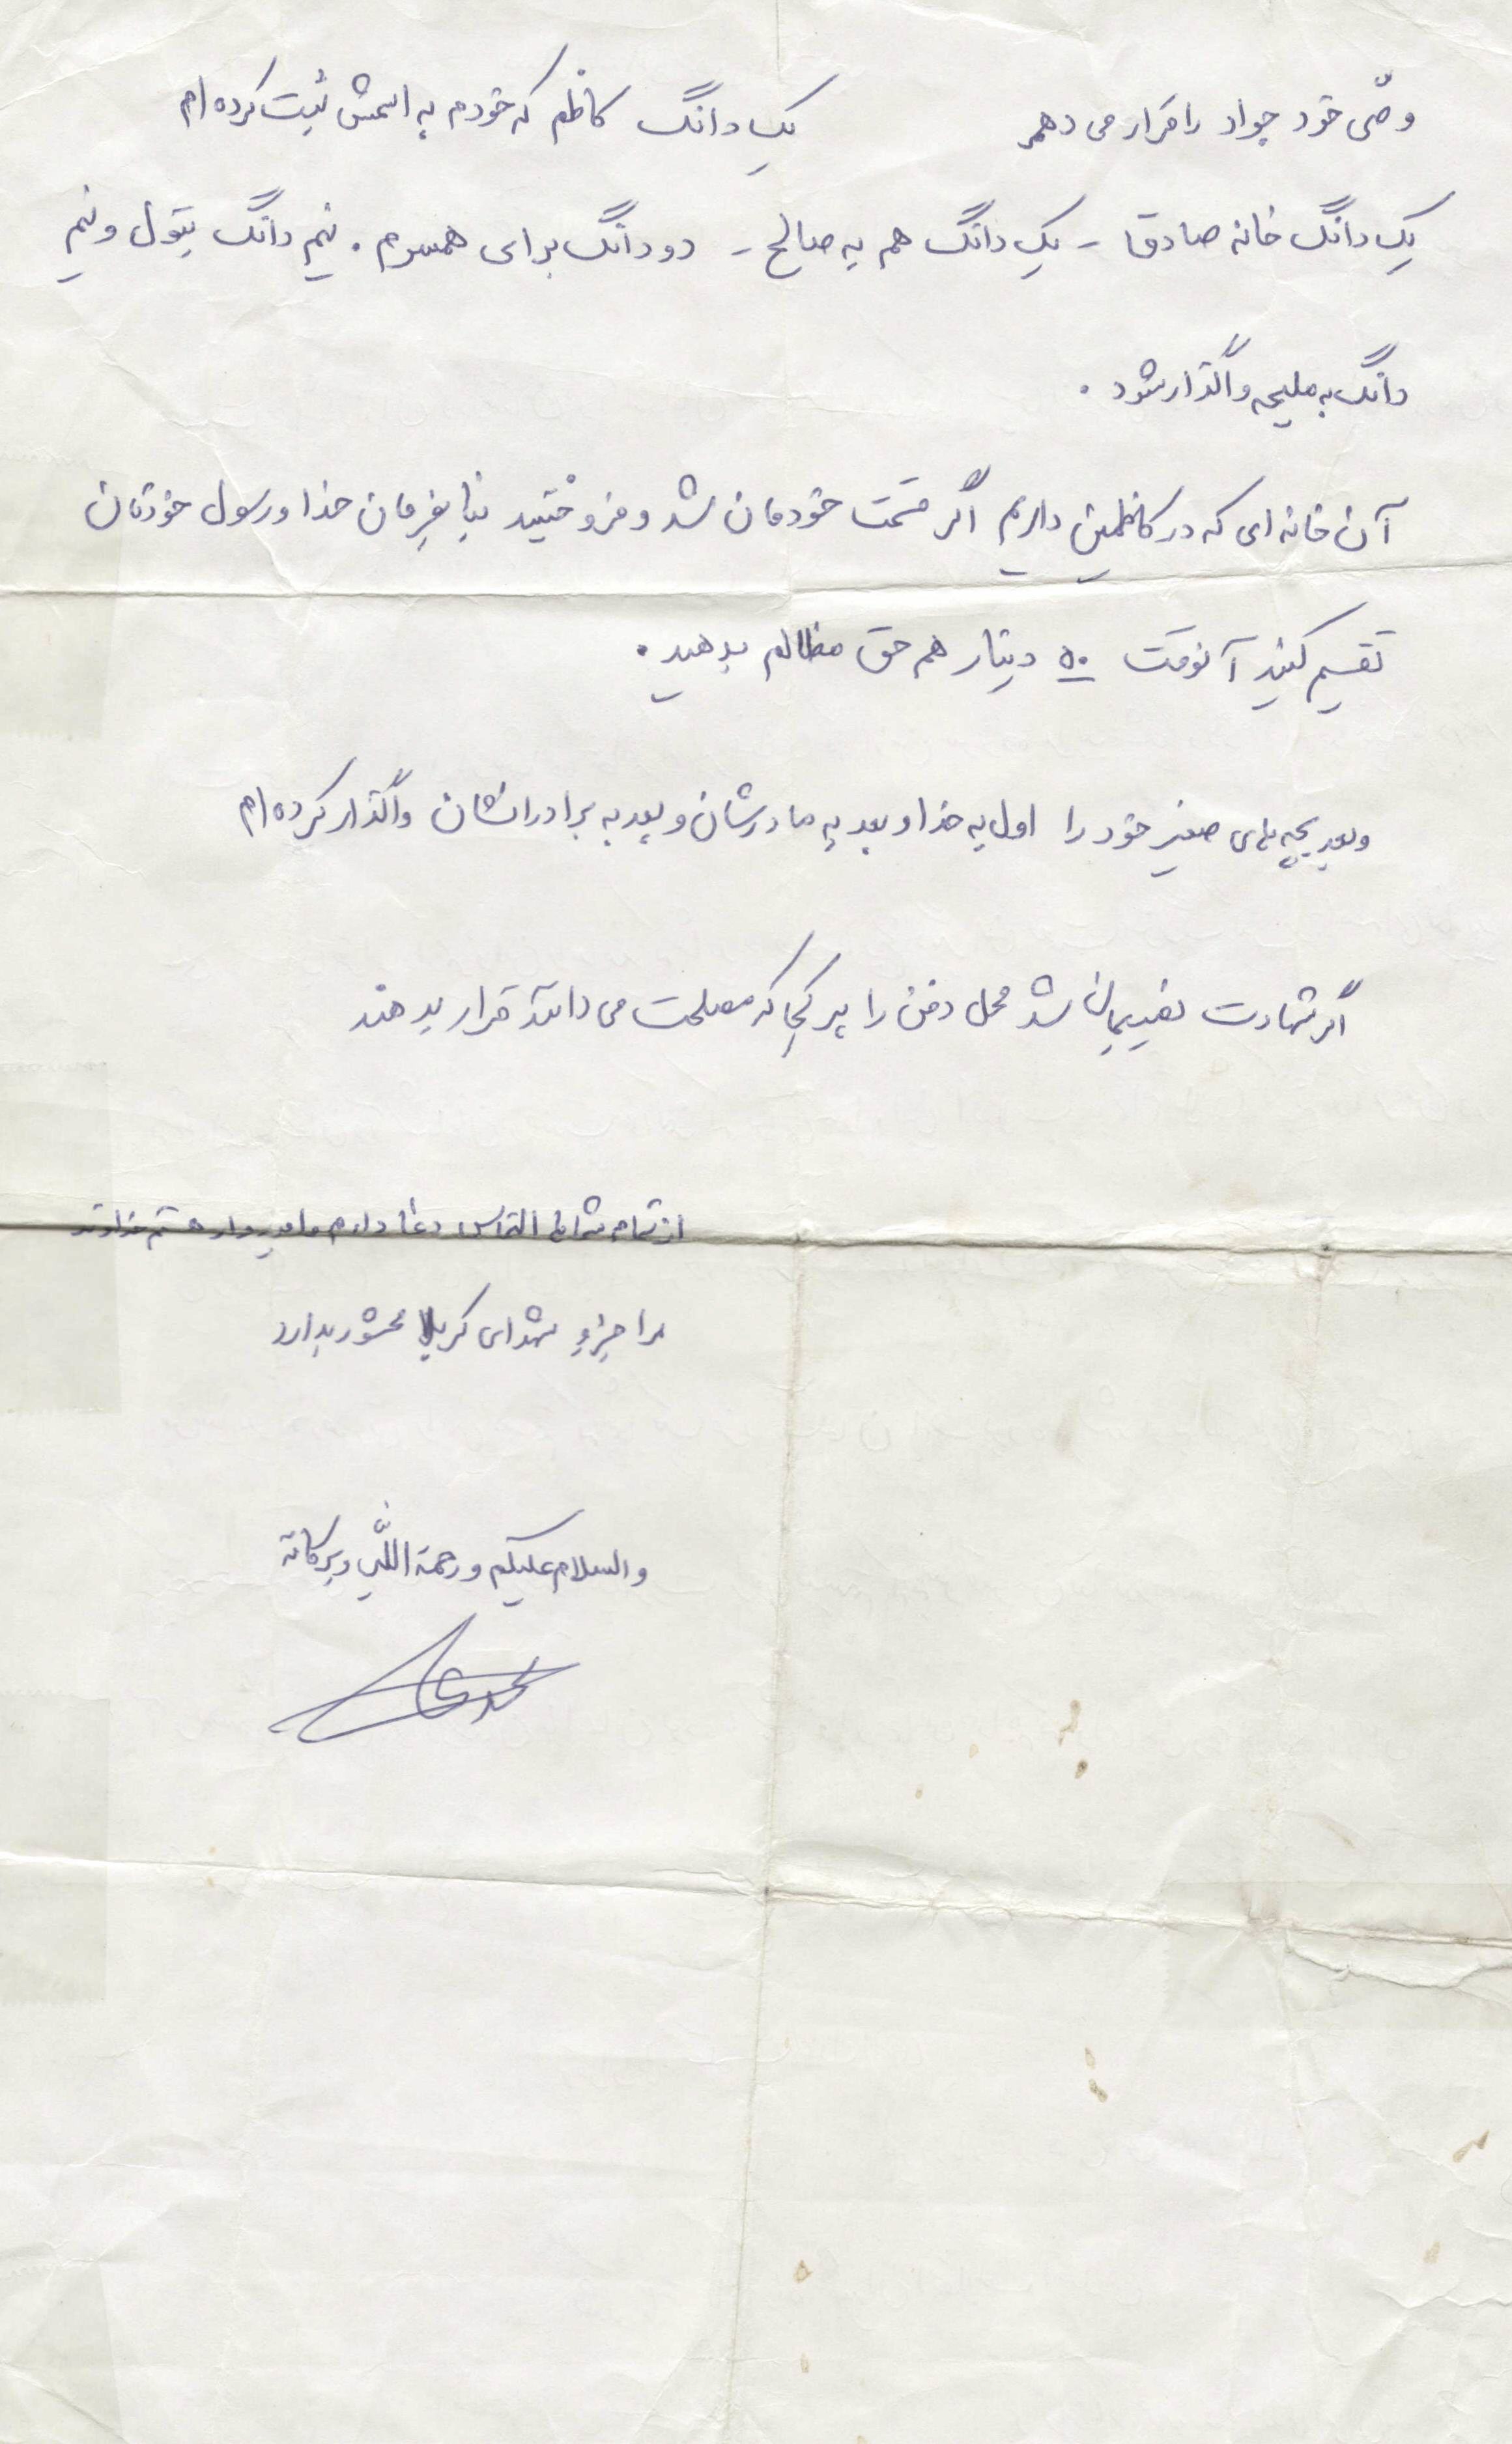 وصّی خود جواد را قرار می دهم یک دانگ کاظم که خودم به اسمش ثبت کرده ام
یک دانگ خانه صادق - یک دانگ هم به صالح - دو دانگ برای همسرم . نیم دانگ بتول و نیم
دانگ به ملیحه واگذار شود .
آن خانه ای که در کاظمین داریم اگر قسمت خودمان شد و فروختید بنا بفرمان خدا و رسول خودتان
تقسیم کنید آنوقت ۵۰ دینار هم حق مظالم بدهید .
و بعد بچه های صغیر خود را اول به خدا و بعد به مادرشان و بعد به برادرانشان واگذار کرده ام
اگر شهادت نصیبمان شد محل دفن را هر کجا که مصلحت می دانند قرار بدهند
از تمام شماها التماس دعا دارم و امیدوار هستم خداوند
مرا جزو شهدای کربلا محشور بدارد
والسلام علیکم و رحمة اللّه و برکاته